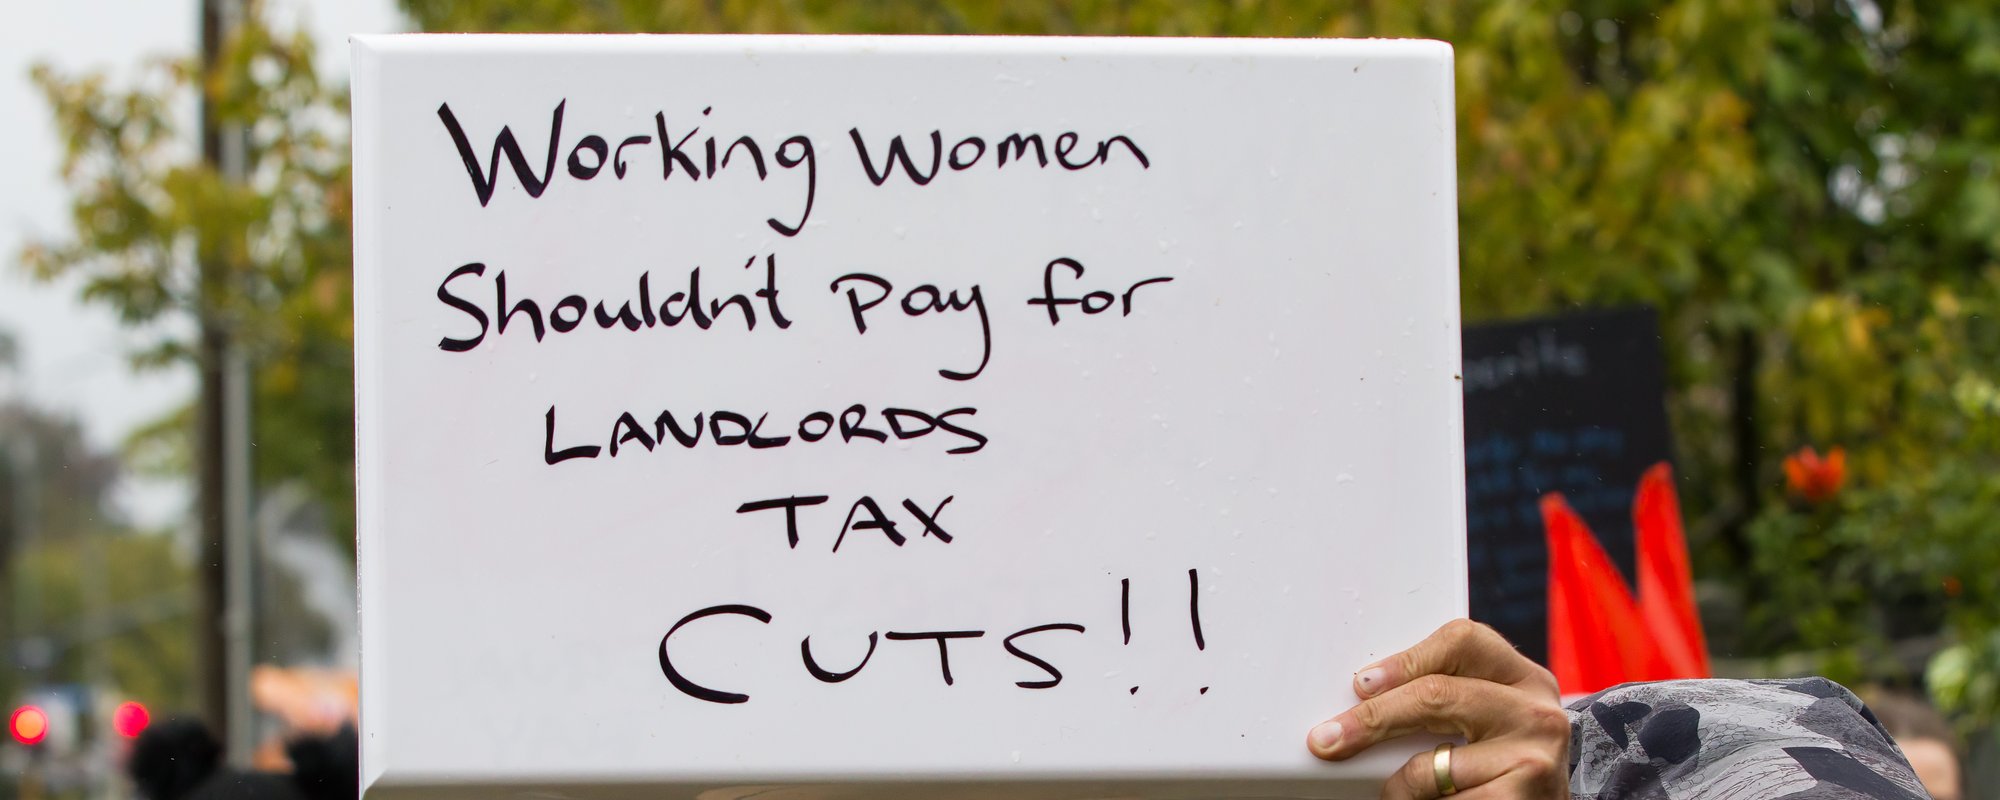 Working women
Shouldn't pay for
LANDLORDS
TAX
CUTS!!